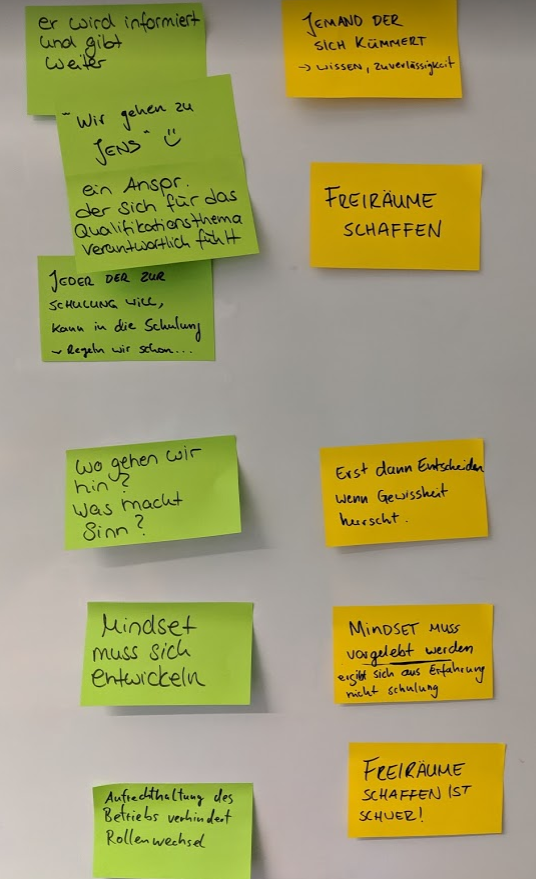 er wird informiert
und gibt
weiter
"Wir gehen zu
JENS"
ein Anspr.
der sich für das
Qualifikationsthema
verantwortlich fühlt
JEDER DER ZUR
SCHULUNG WILL,
kann in die Schulung
Regeln wir schon...
Wo gehen wir
hin?
Was macht
Sinn?
Mindset
muss sich
entwickeln
Aufrechthaltung des
Betriebs verhindert
Rollenwechsel
JEMAND DER
SICH KÜMMERT
→ WISSEN, ZUVERLÄSSIGKEIT
FREIRÄUME
SCHAFFEN
Erst dann Entscheiden
wenn Gewissheit
herrscht.
MINDSET MUSS
vorgelebt werden
ergibt sich aus Erfahrung
nicht schulung
FREIRÄUME
SCHAFFEN IST
SCHWER!